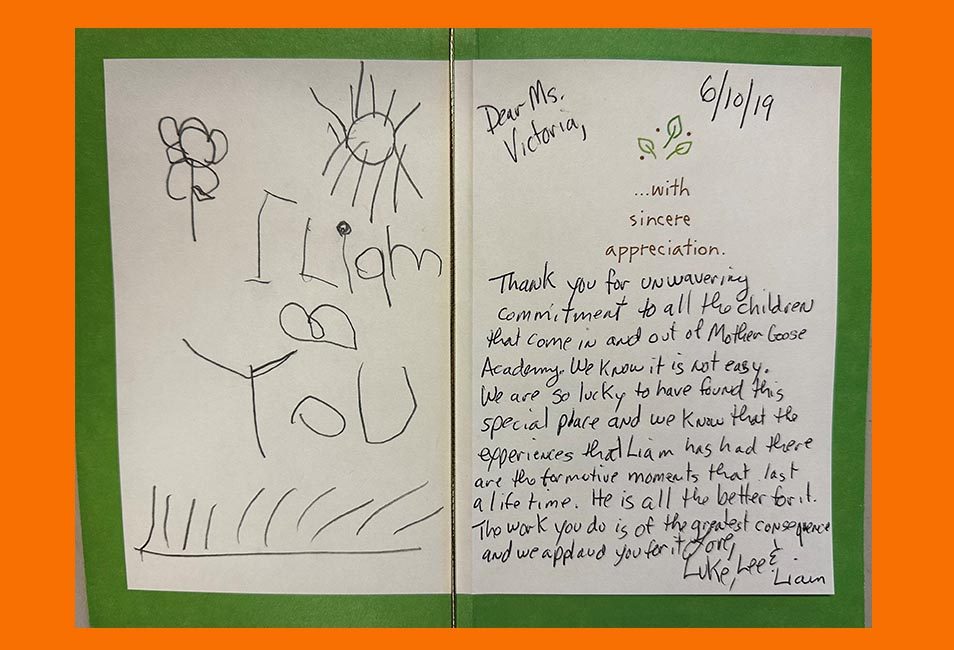 I Liam
YoU
Dear Ms.
Victoria,
6/10/19
...with
sincere
appreciation.
Thank you for unwavering
commitment to all the children
that come in and out of Mother Goose
Academy. We know it is not easy.
We are so lucky to have found this
special place and we know that the
experiences that Liam has had there
are the formative moments that last
a life time. He is all the better for it.
The work you do is of the greatest consequence
and we applaud you for it. Love,
Luke, Lee &
Liam